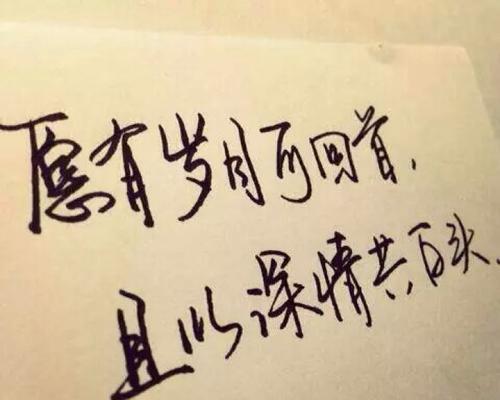 愿有岁月可回首,
且以深情共百头.